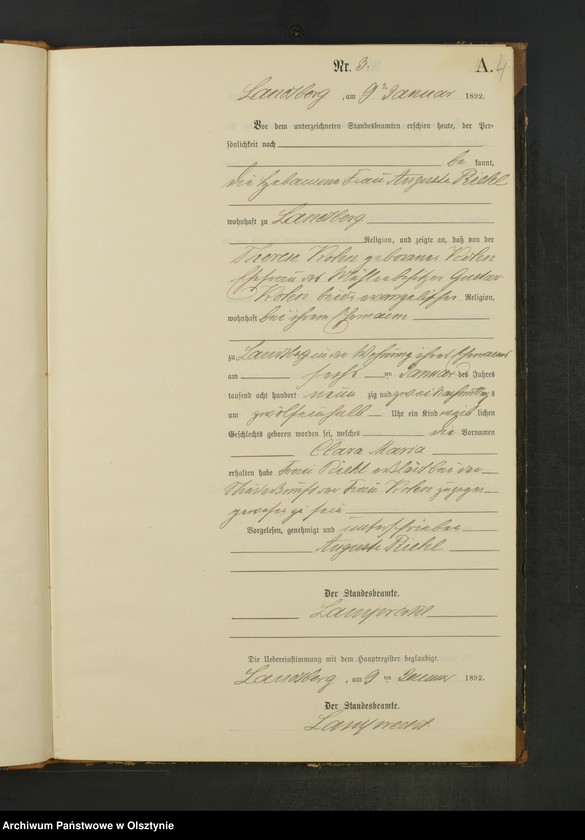 Nr. 3.
A. 4
Landsberg, am 9ten Januar 1892.
Vor dem unterzeichneten Standesbeamten erschien heute, der Per-
sönlichkeit nach
be kannt,
die Hebamme Frau Auguste Riehl
wohnhaft zu Landsberg
Religion, und zeigte an, daß von der
Therese Kohn geborenen Kohn
Ehefrau des Mühlenbesitzer Gustav
Kohn beide evangelischer Religion,
wohnhaft bei ihrem Ehemann
zu Landsberg in der Wohnung ihres Ehemannes
am sechs ten Januar des Jahres
tausend acht hundert neun zig und zwei Vormittags
um zwölfeinhalb Uhr ein Kind weib lichen
Geschlechts geboren worden sei, welches die Vornamen
Clara Maria
erhalten habe Frau Riehl erklärt bei der
Niederkunft der Frau Kohn zugegen
gewesen zu sein
Vorgelesen, genehmigt und unterschrieben
Auguste Riehl
Der Standesbeamte.
Lamprecht
Die Uebereinstimmung mit dem Hauptregister beglaubigt.
Landsberg, am 9ten Januar 1892.
Der Standesbeamte.
Lamprecht
Archiwum Państwowe w Olsztynie